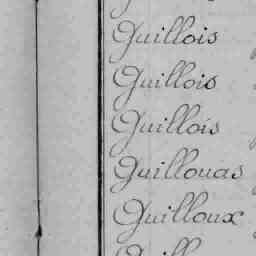 Guillois
Guillois
Guillois
Guillouas
Guilloux
Guill